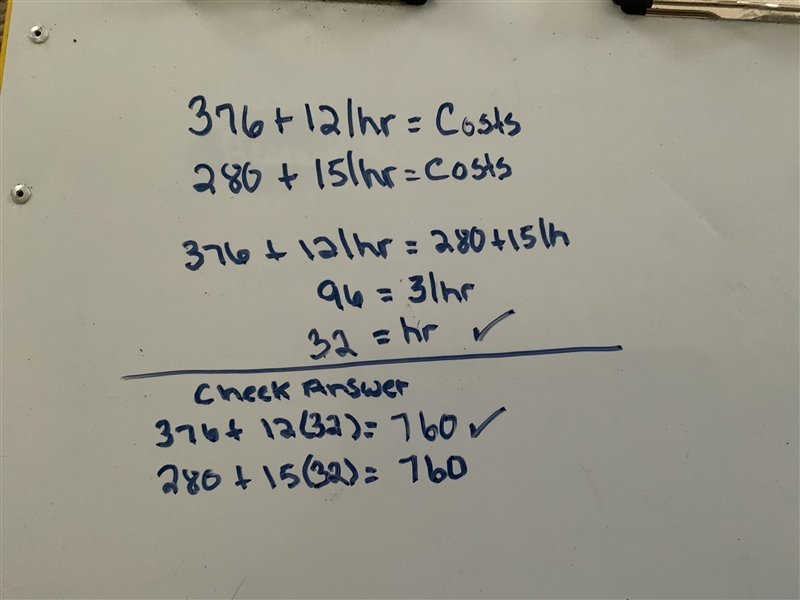 376 + 12/hr = Costs
280 + 15/hr = Costs
376 + 12/hr = 280 + 15/h
96 = 3/hr
32 = hr ✓
Check Answer
376 + 12(32) = 760 ✓
280 + 15(32) = 760